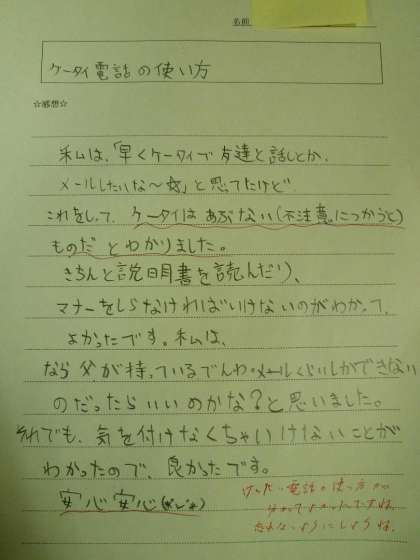 名前
ケータイ電話の使い方
☆感想☆
私は、「早くケータイで友達と話しとか、
メールしたいな〜」と思てたけど
これをして、ケータイはあぶない(不注意につかうと)
ものだとわかりました。
きちんと説明書を読んだり、
マナーをしらなければいけないのがわかって、
よかったです。私は、
なら父が持っているでんわ・メールくらいしかできない
のだったらいいのかな?と思いました。
それでも、気を付けなくちゃいけないことが
わかったので、良かったです。
安心安心
けいたい電話の使い方が
分かってよかったですね。
忘れないようにしようね。